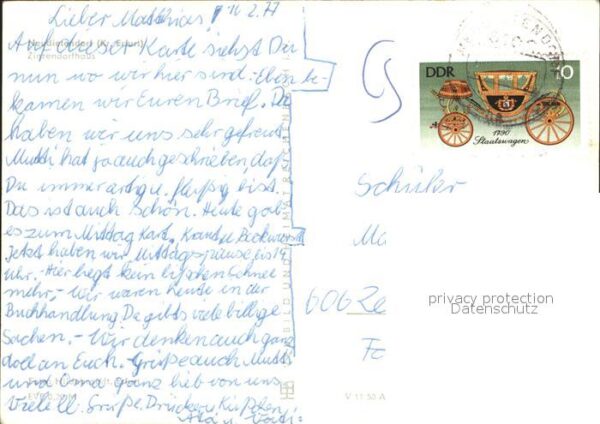 Lieber Matthias! 16.2.77
Auf dieser Karte siehst Du
nun wo wir hier sind. Eben be-
kamen wir Euren Brief. Da
haben wir uns sehr gefreut.
Mutti hat ja auch geschrieben, daß
Du immer artig u. fleißig bist.
Das ist auch schön. Heute gab
es zum Mittag Kart., Kraut u. Bockwurst.
Jetzt haben wir Mittagspause bis 14
Uhr.- Hier liegt kein bißchen Schnee
mehr,- Wir waren heute in der
Buchhandlung Da gibts viele billige
Sachen.- Wir denken auch ganz
doll an Euch.- Grüße auch Mutti
und Oma ganz lieb von uns
Viele lb. Grüße, Drücker u. Küßchen
Neudietendorf (Kr. Erfurt)
Zinzendorfhaus
EVP 0,20 M
V 11 50 A
DDR 10
1790
Staatswagen
Schüler
Ma
606 Ze
privacy protection
Datenschutz